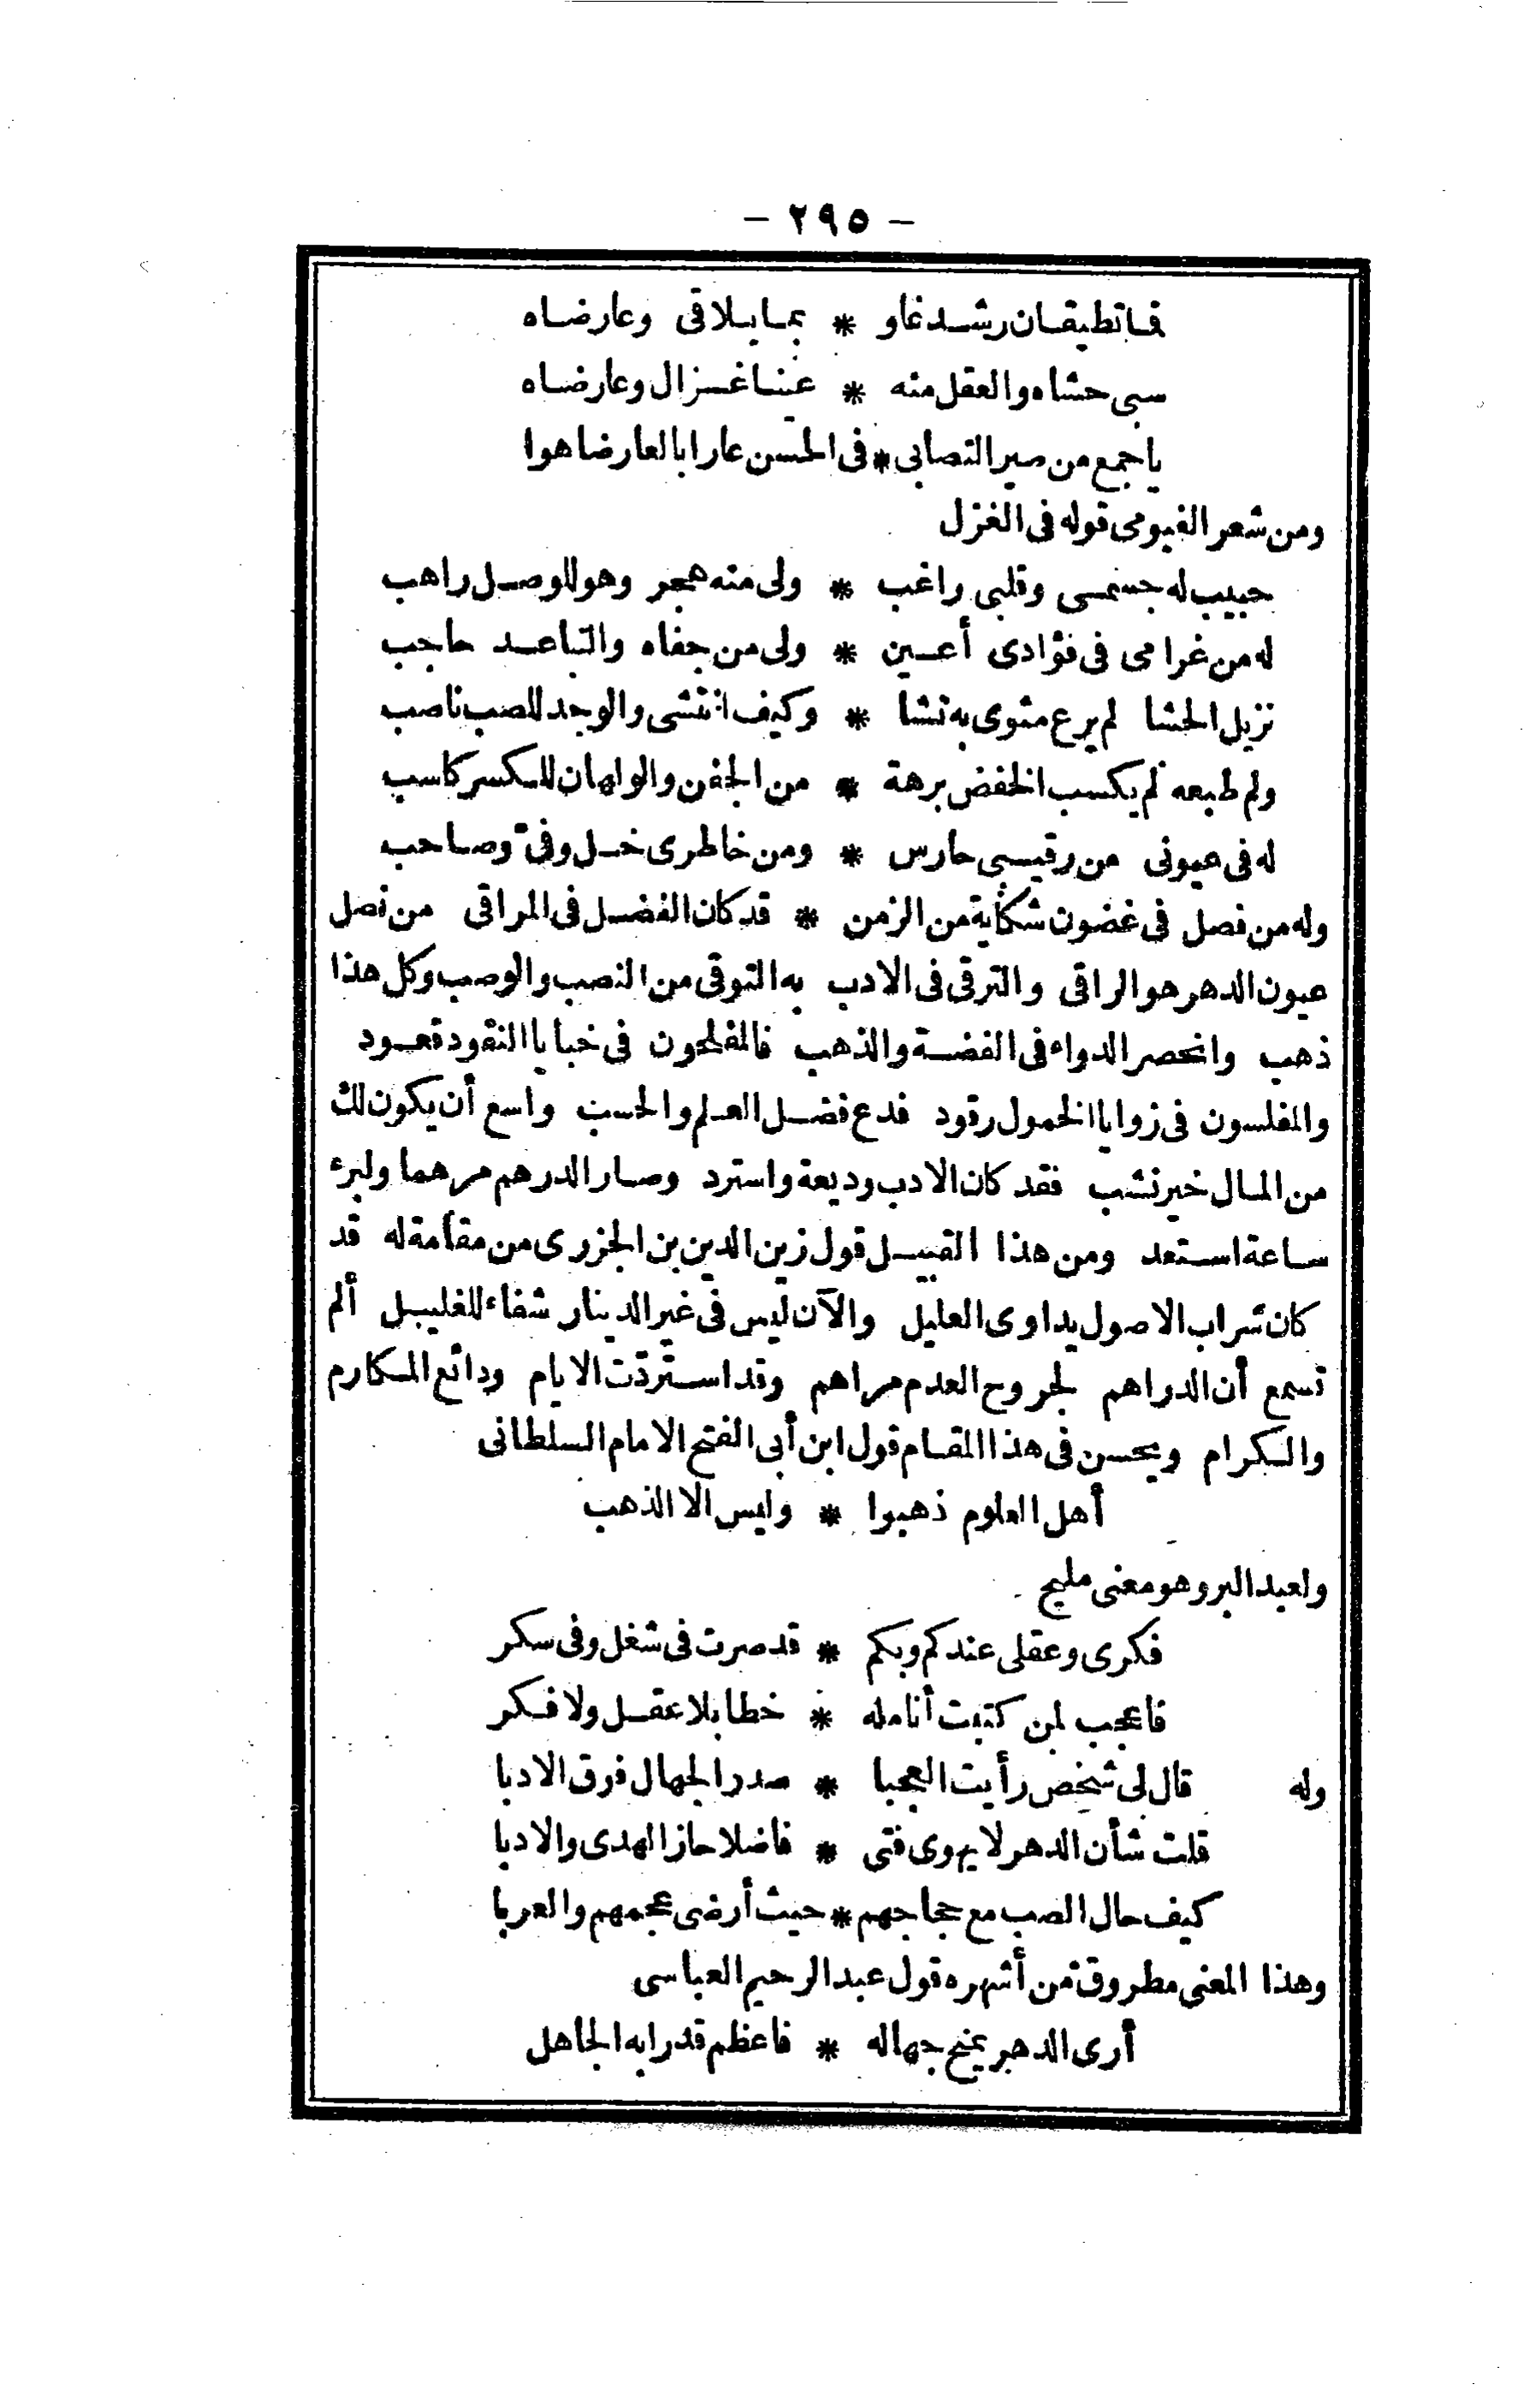 - ٢٩٥ -
فما تطيقان رشد غاو * بما يلاقى وعارضاه
سبى حشاه والعقل منه * عينا غزال وعارضاه
ياجمع من صير التصابى * فى الحسن عارا بالعارضاهوا
ومن شعر الفيومى قوله فى الغزل
حبيب له جسمى وقلبى راغب * ولى منه هجر وهو للوصل راهب
له من غرامى فى فؤادى أعين * ولى من جفاه والتباعد حاجب
نزيل الحشا لم يرع مثوى به نشا * وكيف انتشى والوجد للصب ناصب
ولم طبعه لم يكسب الخفض برهة * من الجفن والولهان للكسر كاسب
له فى عيونى من رقيبى حارس * ومن خاطرى خل وفىّ وصاحب
وله من فصل فى غضون شكاية من الزمن * قد كان الفضل فى المراقى من نصل
عيون الدهر هو الراقى والترقى فى الادب به التوقى من النصب والوصب وكل هذا
ذهب وانحصر الدواء فى الفضة والذهب فالمفلحون فى خبايا النقود قعود
والمفلسون فى زوايا الخمول رقود فدع فضل العلم والحسب واسع أن يكون لك
من المال خير نشب فقد كان الادب وديعة واسترد وصار الدرهم مرهما ولبرء
ساعة استعد ومن هذا القبيل قول زين الدين بن الجزرى من مقامة له قد
كان شراب الاصول يداوى العليل والآن ليس فى غير الدينار شفاء للغليل ألم
تسمع أن الدراهم لجروح العدم مراهم وقد استردّت الايام ودائع المكارم
والكرام ويحسن فى هذا المقام قول ابن أبى الفتح الامام السلطانى
أهل العلوم ذهبوا * وليس الا الذهب
ولعبد البر وهو معنى مليح
فكرى وعقلى عندكم وبكم * قد صرت فى شغل وفى سكر
فاعجب لمن كتبت أنامله * خطا بلا عقل ولا فكر
وله قال لى شخص رأيت العجبا * صدر الجهال فوق الادبا
قلت شأن الدهر لا يهوى فتى * فاضلا حاز الهدى والادبا
كيف حال الصب مع حجاجهم * حيث أرضى عجمهم والعربا
وهذا المعنى مطروق من أشهره قول عبد الرحيم العباسى
أرى الدهر يمنح جهاله * فاعظم قدرا به الجاهل